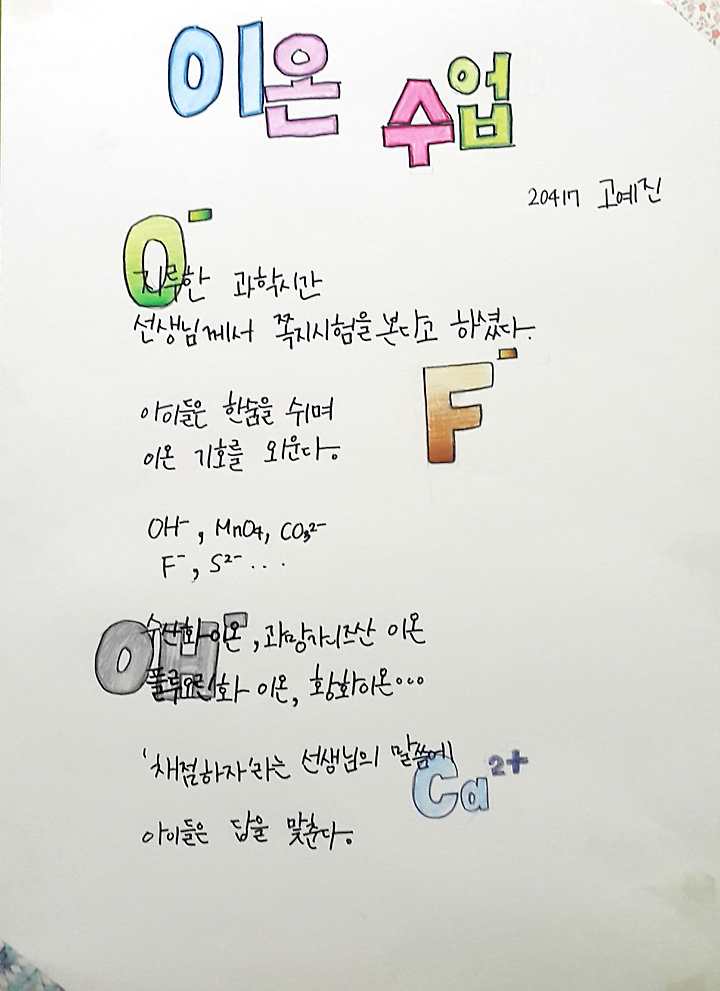 이온 수업
20417 고예진
O⁻
지루한 과학시간
선생님께서 쪽지시험을 본다고 하셨다.
F⁻
아이들은 한숨을 쉬며
이온 기호를 외운다.
OH⁻, MnO4, CO3²⁻
F⁻, S²⁻ ...
OH⁻
수산화이온, 과망가니즈산 이온
플루오린화 이온, 황화이온...
'채점하자'라는 선생님의 말씀에
Ca²⁺
아이들은 답을 맞춘다.